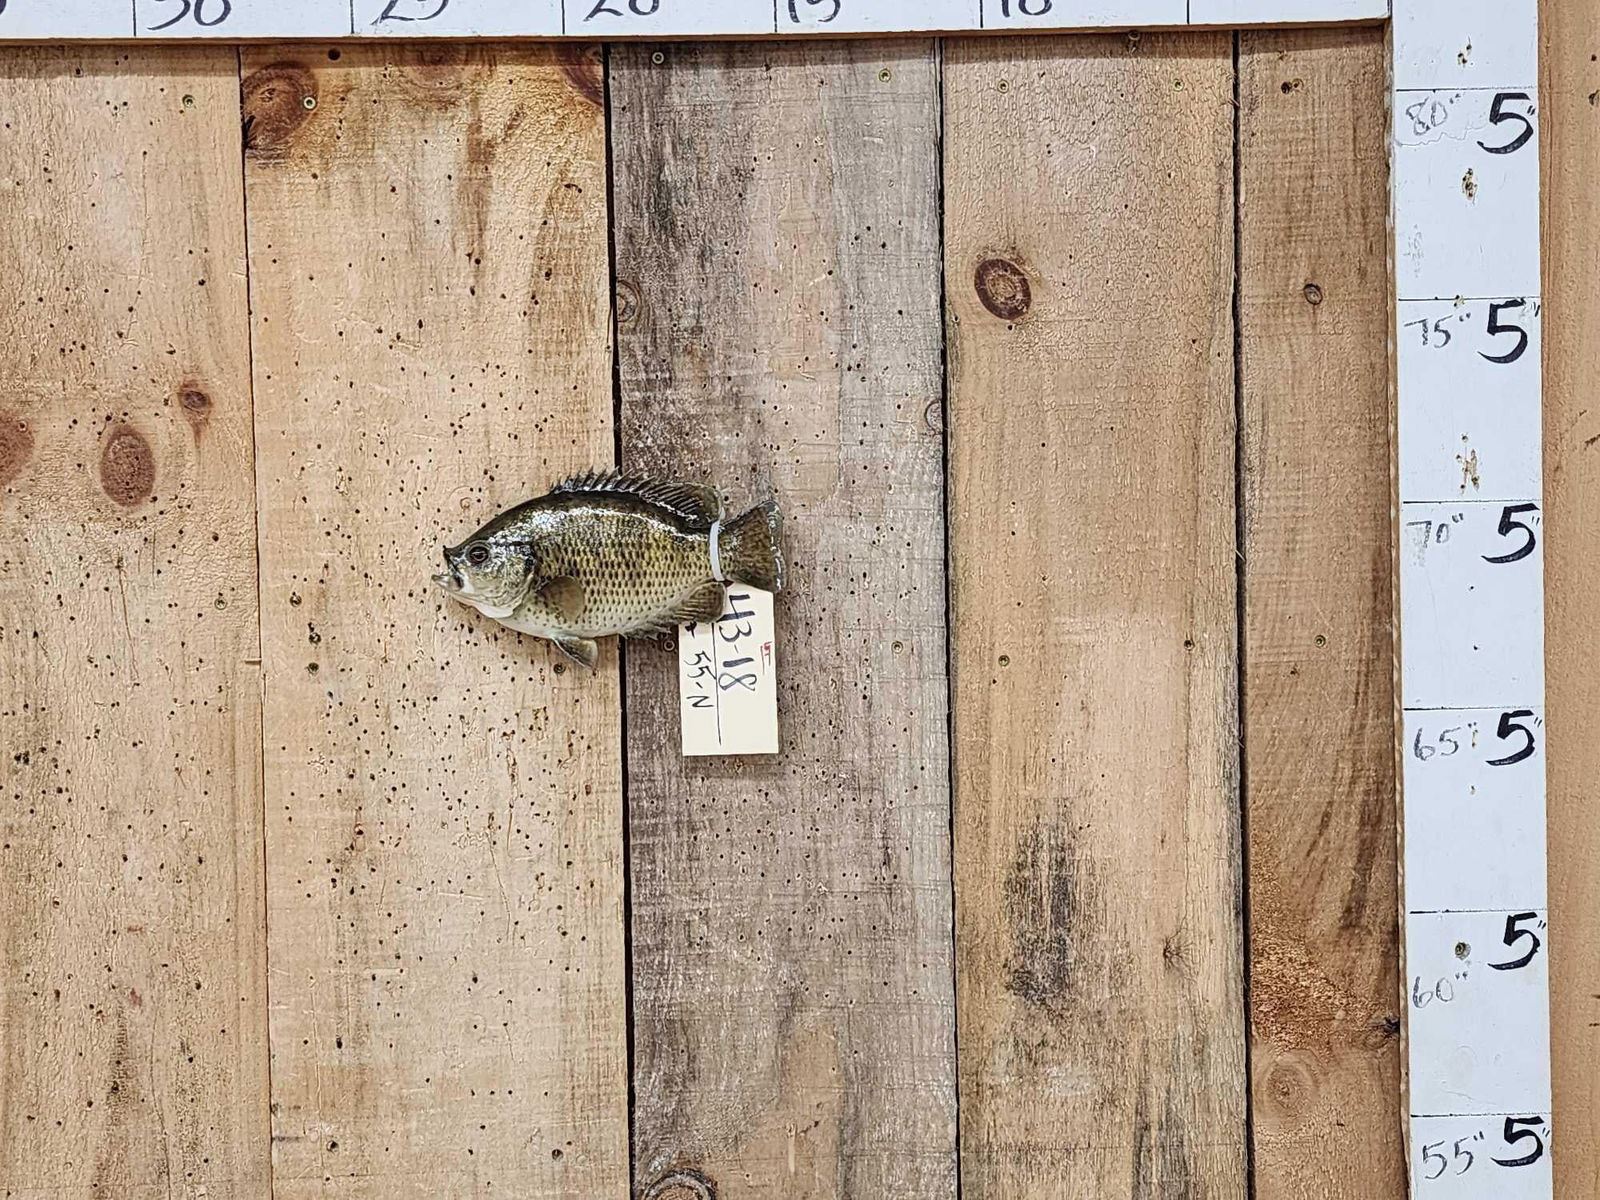 30 25 20 15 10
80" 5"
75" 5"
70" 5"
65" 5"
60" 5"
55" 5"
43-18
55-N